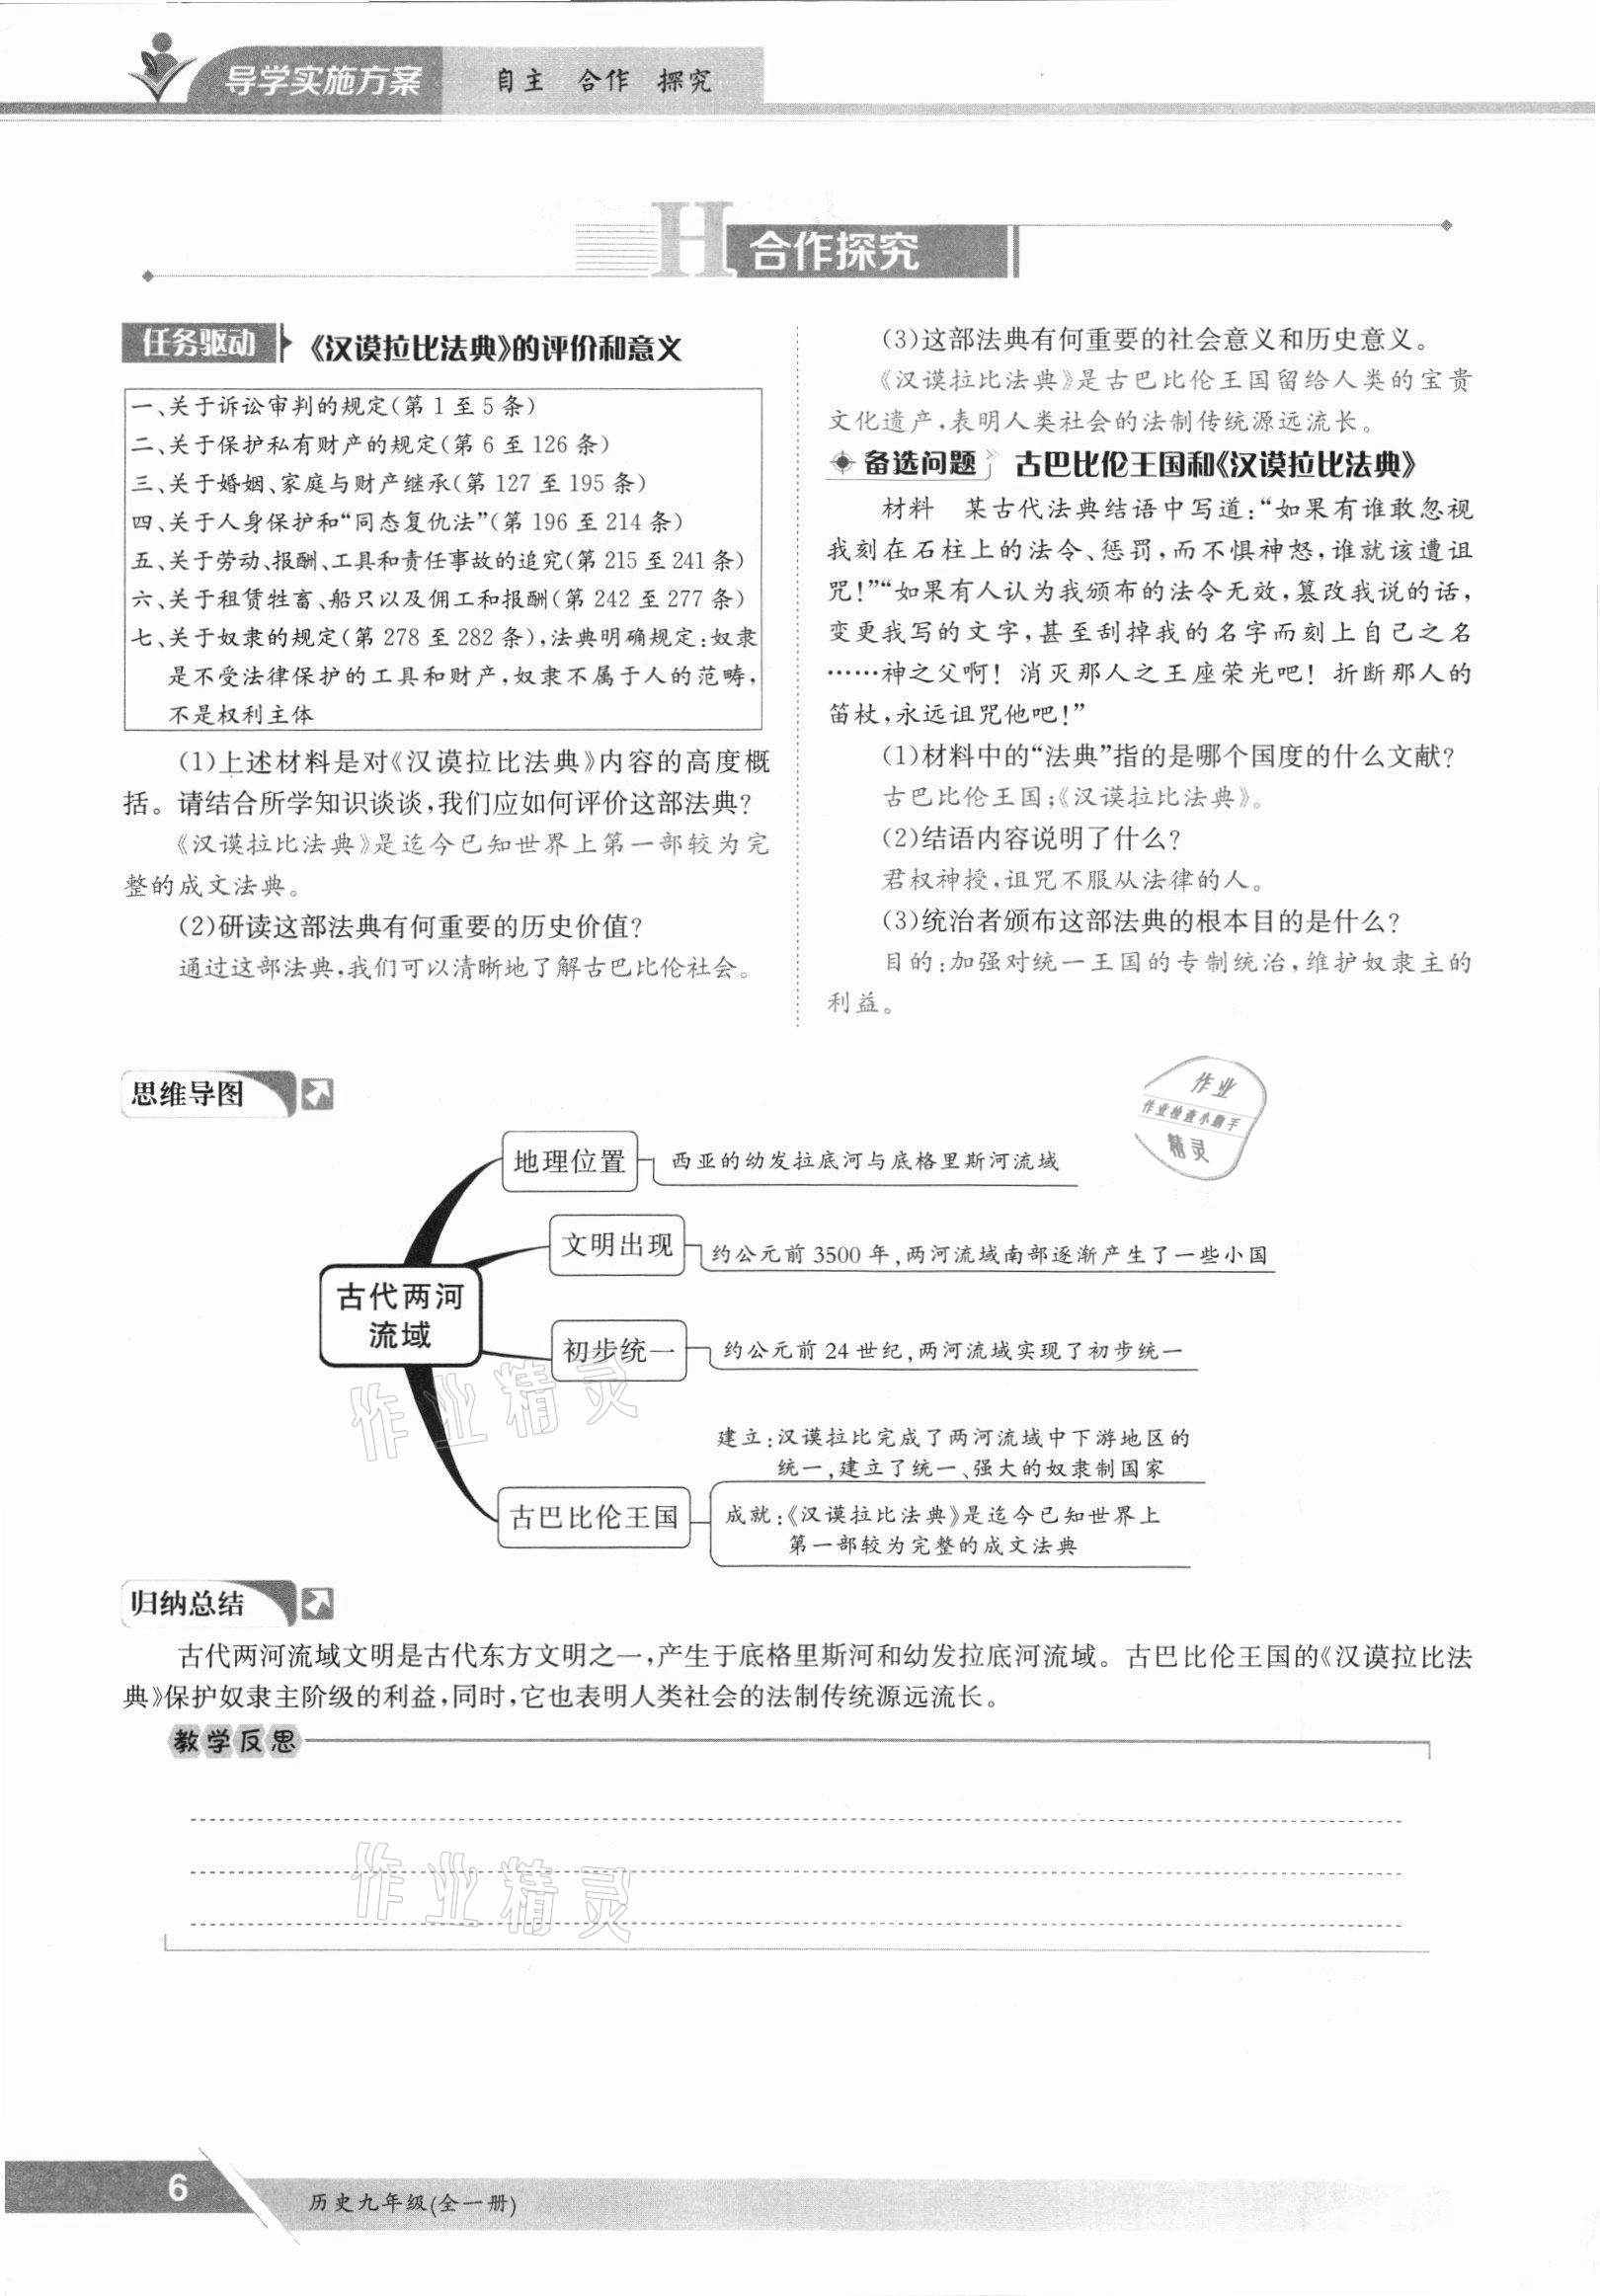 导学实施方案 自主 合作 探究
H 合作探究
任务驱动 《汉谟拉比法典》的评价和意义
一、关于诉讼审判的规定(第 1 至 5 条)
二、关于保护私有财产的规定(第 6 至 126 条)
三、关于婚姻、家庭与财产继承(第 127 至 195 条)
四、关于人身保护和“同态复仇法”(第 196 至 214 条)
五、关于劳动、报酬、工具和责任事故的追究(第 215 至 241 条)
六、关于租赁牲畜、船只以及佣工和报酬(第 242 至 277 条)
七、关于奴隶的规定(第 278 至 282 条),法典明确规定:奴隶
是不受法律保护的工具和财产,奴隶不属于人的范畴,
不是权利主体
(1)上述材料是对《汉谟拉比法典》内容的高度概
括。请结合所学知识谈谈,我们应如何评价这部法典?
《汉谟拉比法典》是迄今已知世界上第一部较为完
整的成文法典。
(2)研读这部法典有何重要的历史价值?
通过这部法典,我们可以清晰地了解古巴比伦社会。
(3)这部法典有何重要的社会意义和历史意义。
《汉谟拉比法典》是古巴比伦王国留给人类的宝贵
文化遗产,表明人类社会的法制传统源远流长。
备选问题 古巴比伦王国和《汉谟拉比法典》
材料 某古代法典结语中写道:“如果有谁敢忽视
我刻在石柱上的法令、惩罚,而不惧神怒,谁就该遭诅
咒!”“如果有人认为我颁布的法令无效,篡改我说的话,
变更我写的文字,甚至刮掉我的名字而刻上自己之名
……神之父啊! 消灭那人之王座荣光吧! 折断那人的
笛杖,永远诅咒他吧!”
(1)材料中的“法典”指的是哪个国度的什么文献?
古巴比伦王国;《汉谟拉比法典》。
(2)结语内容说明了什么?
君权神授,诅咒不服从法律的人。
(3)统治者颁布这部法典的根本目的是什么?
目的:加强对统一王国的专制统治,维护奴隶主的
利益。
思维导图
作业
作业检查小助手
精灵
地理位置 西亚的幼发拉底河与底格里斯河流域
文明出现 约公元前 3500 年,两河流域南部逐渐产生了一些小国
古代两河
流域
初步统一 约公元前 24 世纪,两河流域实现了初步统一
作业精灵
建立:汉谟拉比完成了两河流域中下游地区的
统一,建立了统一、强大的奴隶制国家
古巴比伦王国
成就:《汉谟拉比法典》是迄今已知世界上
第一部较为完整的成文法典
归纳总结
古代两河流域文明是古代东方文明之一,产生于底格里斯河和幼发拉底河流域。古巴比伦王国的《汉谟拉比法
典》保护奴隶主阶级的利益,同时,它也表明人类社会的法制传统源远流长。
教学反思
作业精灵
6 历史九年级(全一册)